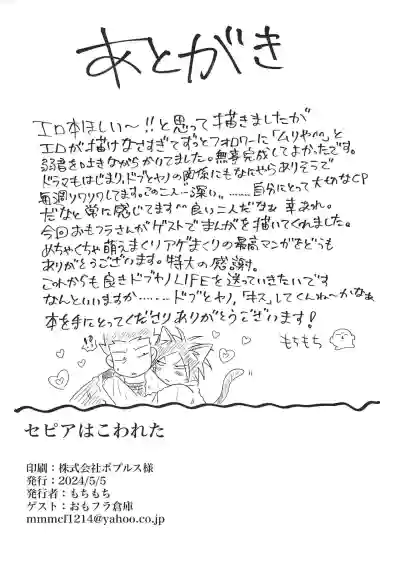 あとがき
エロ本ほしい〜!!と思って描きましたが
エロが描けなさすぎてずっとフォロワーに「ムリや^^」と
弱音を吐きながらかいてました。無事完成してよかったです。
ドラマもはじまり、ドブとヤノの関係にもなにやらありそうで
毎週ソワソワしてます。この二人…深い。………自分にとって大切なCP
だなと常に感じてます^^良い二人だなぁ 幸あれ。
今回おもフラさんがゲストでまんがを描いてくれました。
めちゃくちゃ萌えまくりアゲまくりの最高マンガをどうも
ありがとうございます。特大の感謝。
これからも良きドブヤノLIFEを送っていきたいです
なんといいますか………ドブとヤノ、「キス」してくんね〜かなぁ
本を手にとってくださりありがとうございます!
もちもち
!?
セピアはこわれた
印刷:株式会社ポプルス様
発行:2024/5/5
発行者:もちもち
ゲスト:おもフラ倉庫
mmmcf1214@yahoo.co.jp